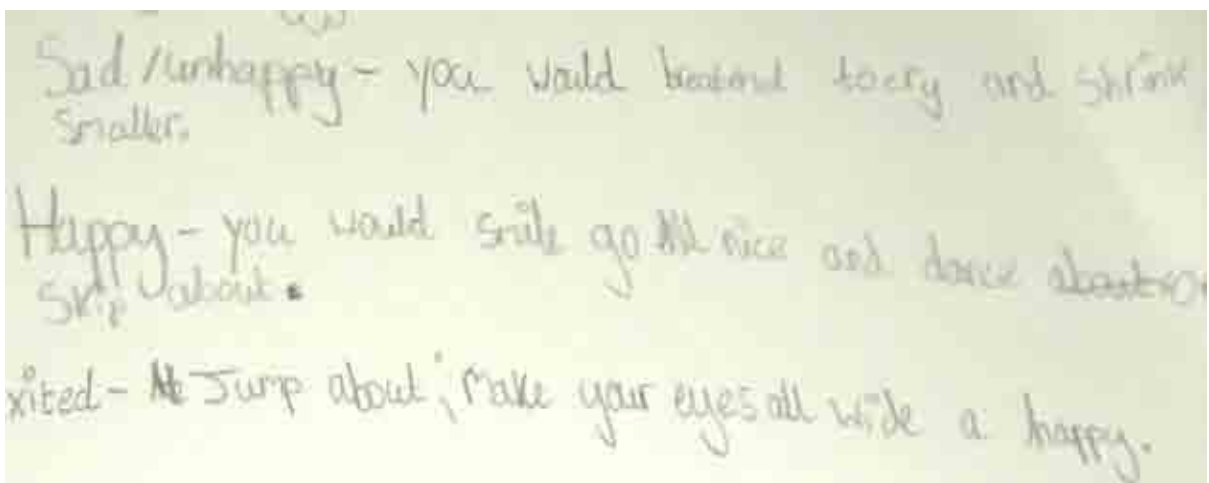 Sad / unhappy - you would to cry and shrink
smaller.
Happy - you would smile go all nice and dance
skip about.
xited - Jump about, make your eyes all wide a happy.